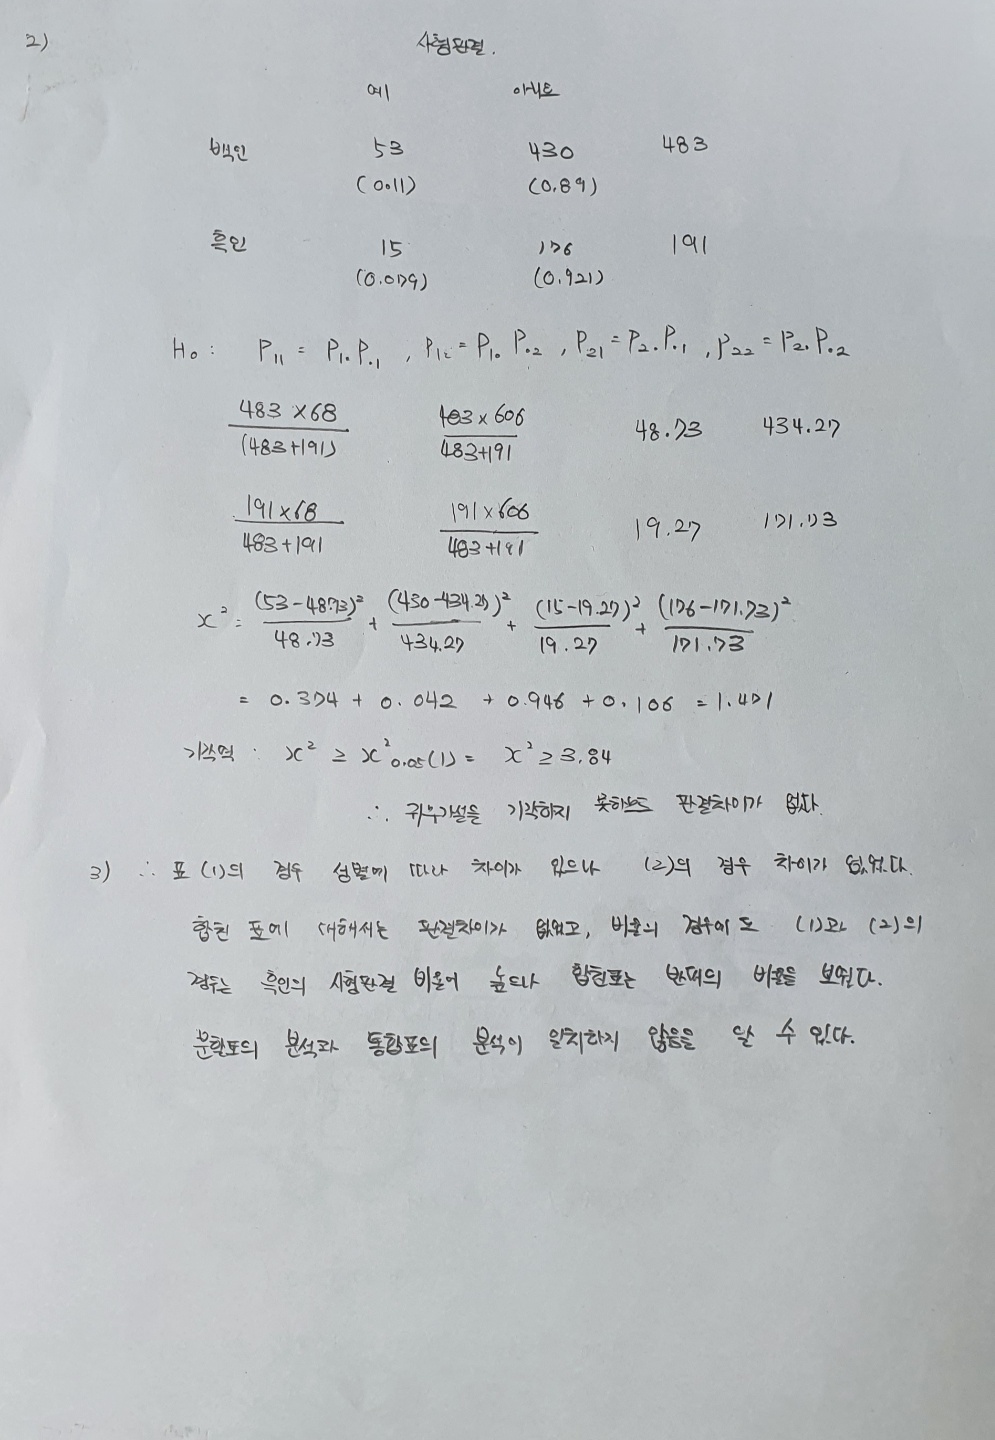 2) 사형판결.
예 아니오
백인 53 430 483
(0.11) (0.89)
흑인 15 176 191
(0.079) (0.921)
H₀ : P₁₁ = P₁.P.₁ , P₁₂ = P₁. P.₂ , P₂₁ = P₂. P.₁ , P₂₂ = P₂. P.₂
483 × 68 / (483+191) 483 × 606 / 483+191 48.73 434.27
191 × 68 / 483+191 191 × 606 / 483+191 19.27 171.73
x² = (53-48.73)² / 48.73 + (430-434.27)² / 434.27 + (15-19.27)² / 19.27 + (176-171.73)² / 171.73
= 0.374 + 0.042 + 0.946 + 0.106 = 1.471
기각역 : x² ≥ x²0.05(1) = x² ≥ 3.84
∴ 귀무가설을 기각하지 못하므로 판결차이가 없다.
3) ∴ 표 (1)의 경우 성별에 따라 차이가 있으나 (2)의 경우 차이가 없었다.
합친 표에 대해서는 판결차이가 없었고, 비율의 경우에도 (1)과 (2)의
경우는 흑인의 사형판결 비율이 높으나 합친표는 반대의 비율을 보였다.
분할표의 분석과 통합표의 분석이 일치하지 않음을 알 수 있다.